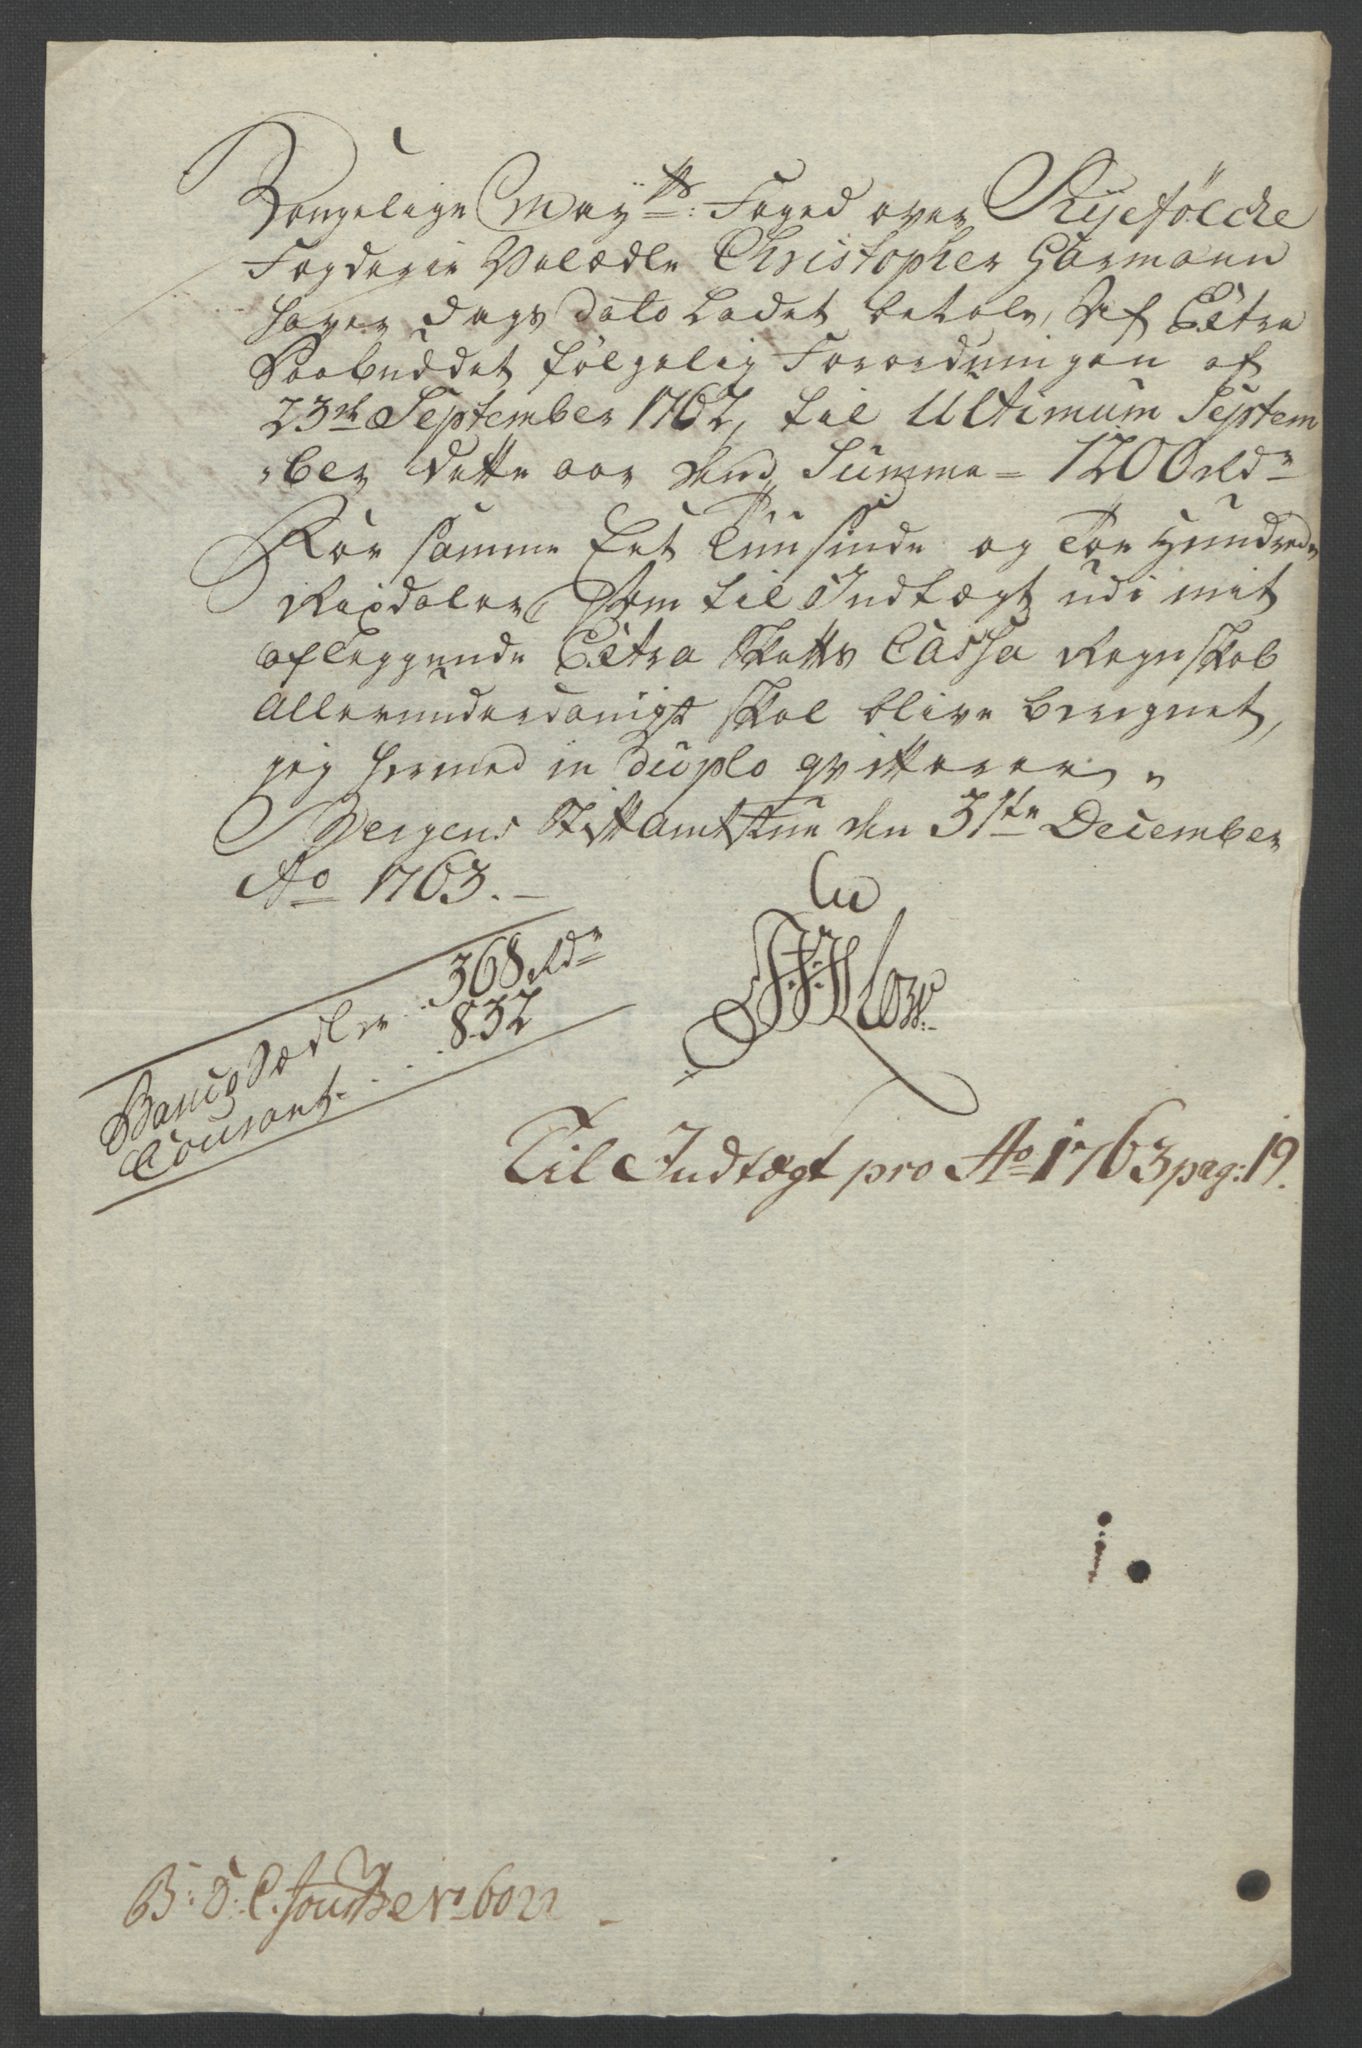 Kongelige May:ts Foged over Ryefölcke
Fogderie Velædle Christopher Garmann
haver dags dato ladet betale, Af Extra
Paabuddet følgelig Forordningen af
23de September 1762, til Ultimum Septem
-ber dette aar den Summa = 1200 Rdr
For samme Eet Tuusinde og Toe Hundrede
Rixdaler, som til Indtægt udi mit
aflæggende Extra Skatts Cassa Regnskab
allerunderdanigst skal blive beregnet,
jeg hermed in duplo qvitterer,,
Bergens Stiftamtstue den 31te December
Ao 1763.
Banco Sedler . 368 Rdr
Courant . . . 832
Til Indtægt pro Ao 1763 pag: 19.
1.
B: S: C. No 6022